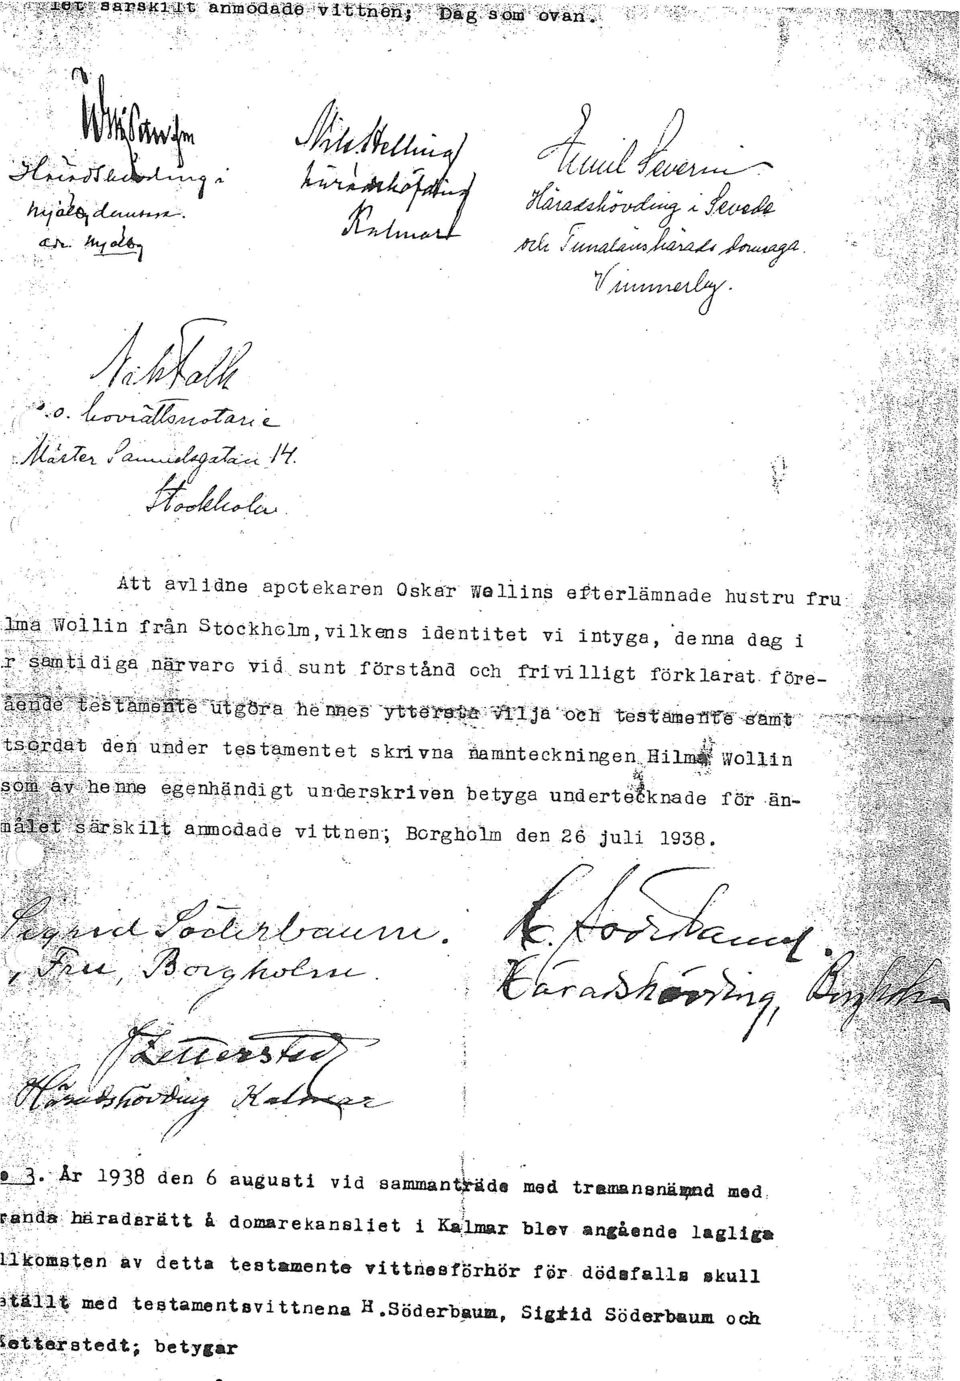 let särskilt anmodade vittnen; Dag som ovan.
Häradshövding i
Mjölby
Nils Helling
häradshöfding
Kalmar
Emil Severin
Häradshövding i Sevede
och Tunaläns härads domsaga.
Vimmerby.
Nils Falk
e.o. hovrättsnotarie
Mäster Samuelsgatan 14.
Stockholm
Att avlidne apotekaren Oskar Wollins efterlämnade hustru fru
lma Wollin från Stockholm, vilkens identitet vi intyga, denna dag i
r samtidiga närvaro vid sunt förstånd och frivilligt förklarat före-
ående testamente utgöra hennes yttersta vilja och testamente samt
tsordat den under testamentet skrivna namnteckningen Hilma Wollin
som av henne egenhändigt underskriven betyga undertecknade för än-
målet särskilt anmodade vittnen; Borgholm den 26 juli 1938.
Sigrid Söderbaum.
Fru, Borgholm.
H. Söderbaum.
Häradshövding, Borgholm
Zetterstedt
Häradshövding Kalmar
3. År 1938 den 6 augusti vid sammanträde med tremansnämnd med
rande häradsrätt å domarekansliet i Kalmar blev angående lagliga
llkomsten av detta testamente vittnesförhör för dödsfalls skull
ställt med testamentsvittnena H.Söderbaum, Sigrid Söderbaum och
Zetterstedt; betygar